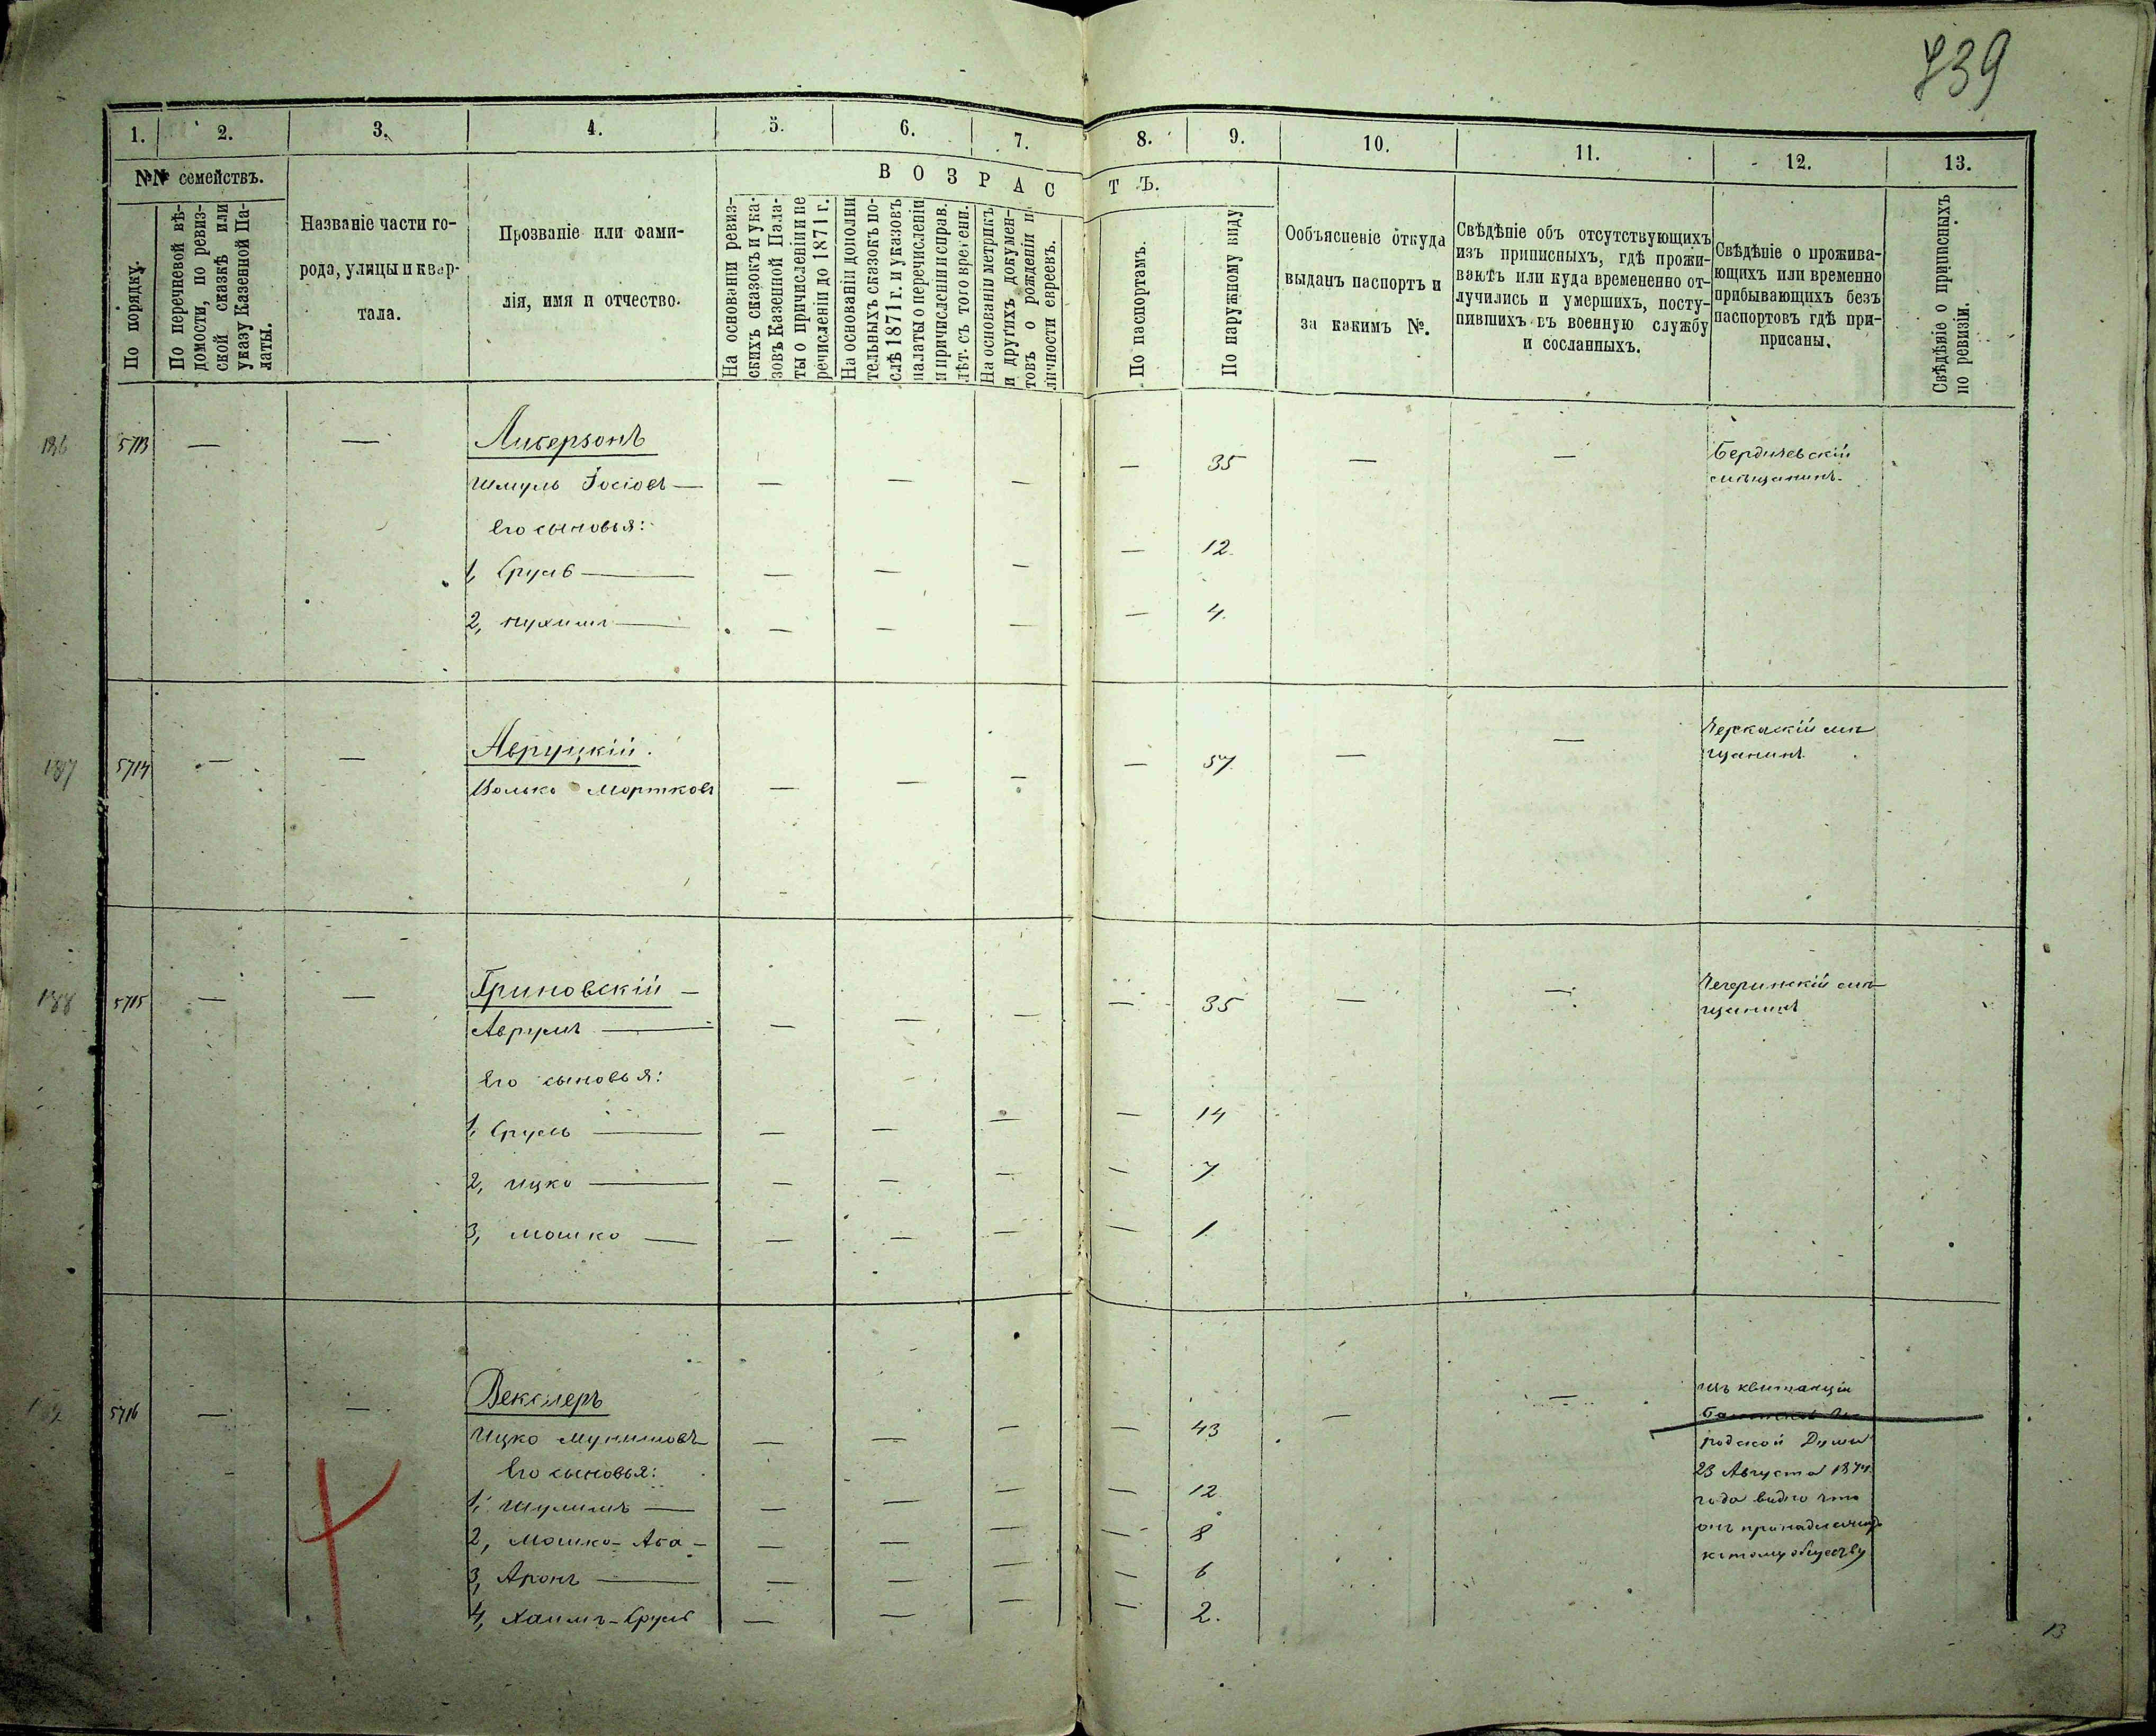 739
1. 2. 3. 4. 5. 6. 7. 8. 9. 10. 11. 12. 13.
№№ семействъ.
По порядку.
По перечневой вѣ-
домости, по ревиз-
ской сказкѣ или
указу Казенной Па-
латы.
Названіе части го-
рода, улицы и квар-
тала.
Прозваніе или фами-
лія, имя и отчество.
ВОЗРАСТЪ.
На основани ревиз-
скихъ сказокъ и ука-
зовъ Казенной Пала-
ты о причисленіи и пе
речисленіи до 1871 г.
На основаніи дополни
тельныхъ сказокъ по-
слѣ 1871 г. и указовъ
палаты о перечисленіи
и причисленіи и справ.
лѣт. съ того времени.
На основаніи метрикъ
и другихъ докумен-
товъ о рожденіи и
личности евреевъ.
По паспортамъ.
По наружному виду
Ообъясненіе откуда
выданъ паспортъ и
за какимъ №.
Свѣдѣніе объ отсутствующихъ
изъ приписныхъ, гдѣ прожи-
ваютъ или куда временно от-
лучились и умершихъ, посту-
пившихъ въ военную службу
и сосланныхъ.
Свѣдѣніе о прожива-
ющихъ или временно
прибывающихъ безъ
паспортовъ гдѣ при-
присаны.
Свѣдѣніе о приписныхъ
по ревизіи.
186 5713 — — Либерзонъ
Шмуль Іосіовъ — — — — — 35 — — Бердичевскій
мѣщанинъ.
Его сыновья:
1, Сруль — — — — — 12.
2, Нухимъ — — — — — 4.
187 5714 — — Авруцкій.
Волько Мортковъ — — — — 57 — — Черкаскій мѣ
щанинъ.
188 5715 — — Гриновскій —
Аврумъ — — — — — 35 — — Чегеринскій мѣ-
щанинъ
Его сыновья:
1, Сруль — — — — — 14
2, Ицко — — — — — 7
3, Мошко — — — — — 1
5716 — — Векслеръ
Ицко Мунишовъ — — — — 43 — — изъ квитанціи
родской Думы
23 Августа 1874
года видно что
онъ принадлежитъ
къ тому обществу
Его сыновья:
1, Шулимъ — — — — — 12
2, Мошко-Аба — — — — — 8
3, Аронъ — — — — — 6
4, Хаимъ-Сруль — — — — 2.
13